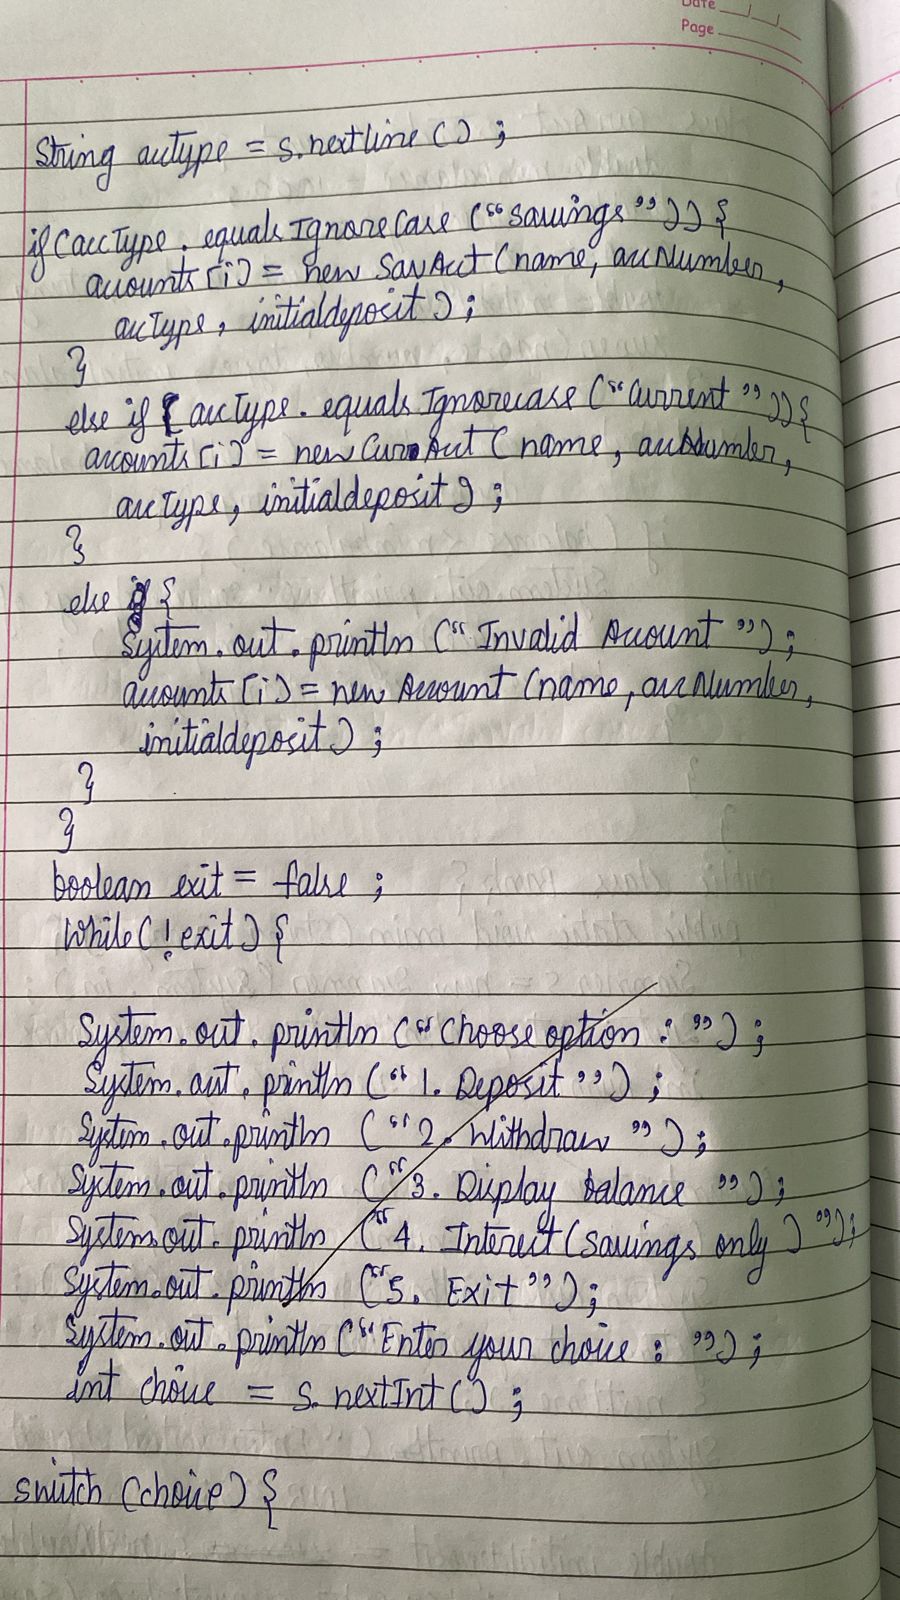 Date
Page
String acctype = s.nextline();
if(accType.equalsIgnoreCase("savings")){
accounts[i] = new SavAcct(name, accNumber,
accType, initialdeposit);
}
else if(accType.equalsIgnorecase("Current")){
accounts[i] = new CurrAcct(name, accNumber,
accType, initialdeposit);
}
else {
System.out.println("Invalid Account");
accounts[i] = new Account(name, accNumber,
initialdeposit);
}
}
boolean exit = false;
while(!exit){
System.out.println("Choose option:");
System.out.println("1. Deposit");
System.out.println("2. Withdraw");
System.out.println("3. Display balance");
System.out.println("4. Interest(savings only)");
System.out.println("5. Exit");
System.out.println("Enter your choice:");
int choice = s.nextInt();
switch(choice){